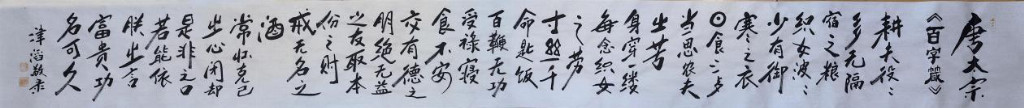 唐太宗
《百字箴》
耕夫役々
多无隔
宿之粮
织女波々
少有御
寒之衣
日食三歺
当思农夫
之苦
身穿一缕
每念织女
之劳
寸丝千
命匙饭
百鞭无功
受禄寝
食不安
交有德之
朋绝无益
之友取本
份之财
戒无名之
酒
常怀克己
之心闭却
是非之口
若能依
朕之言
富贵功
名可久
津沽